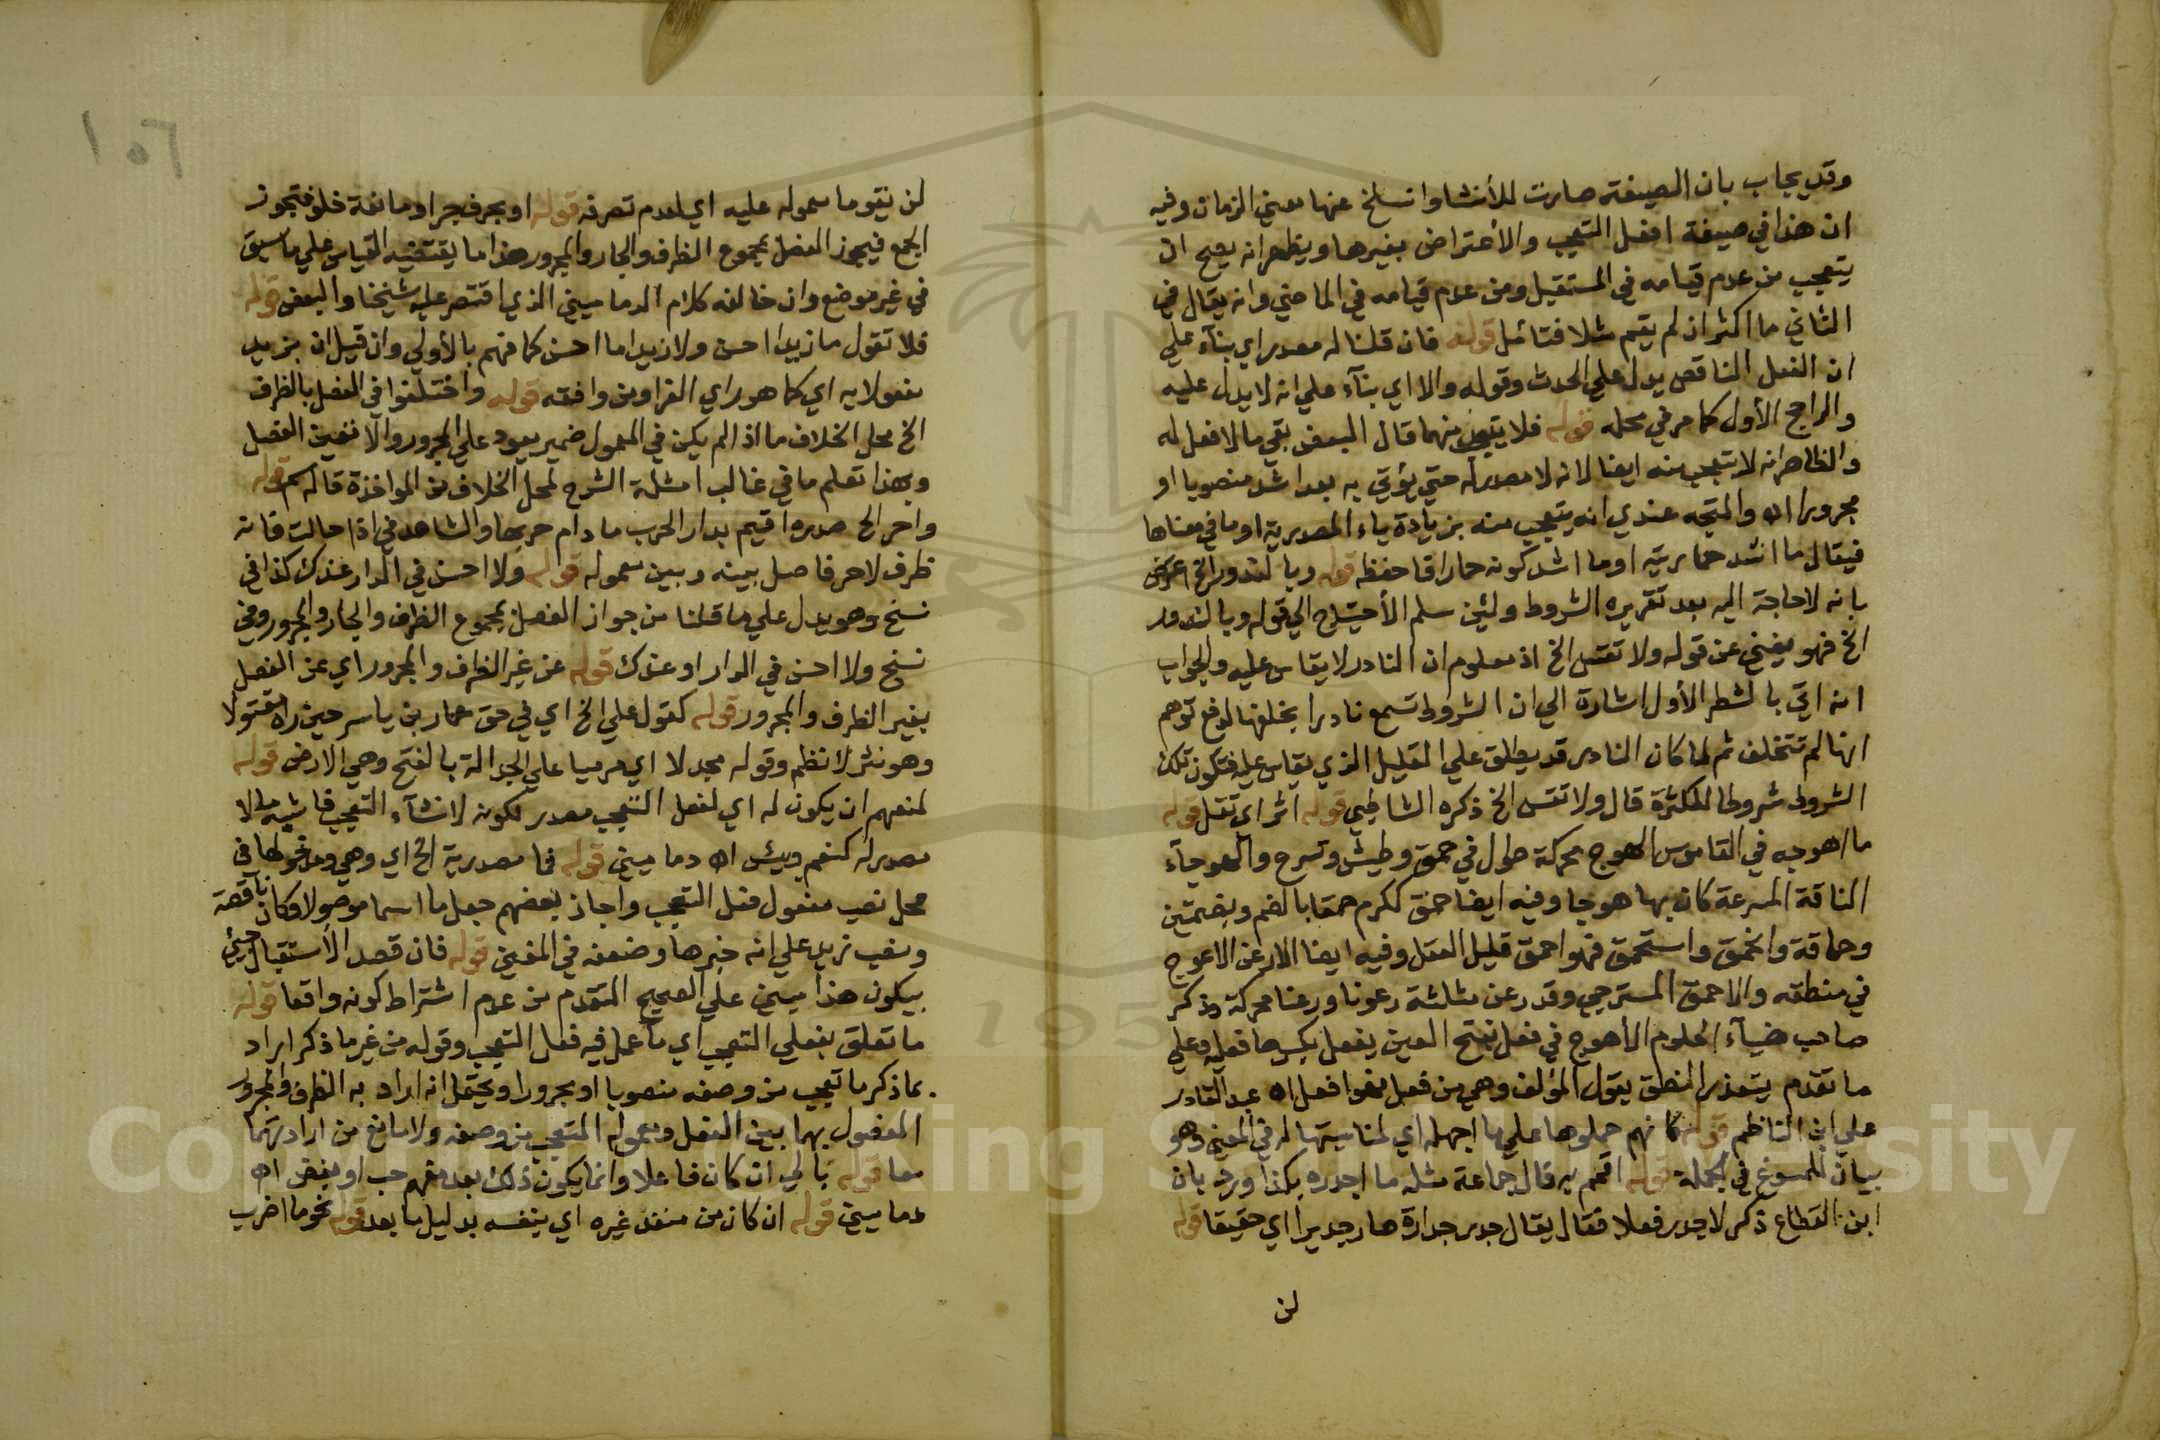 وقد يجاب بان الصيغة صارت للأنشا وانسلخ عنها معني الزمان وفيه
ان هذا في صيغة افعل التعجب والأعتراض بغيرها ويظهر انه يصح ان
يتعجب من عدم قيامه في المستقبل ومن عدم قيامه في الماضي وانه يقال في
الثاني ما اكثر ان لم يقم مثلا فتامل قوله فان قلنا له مصدر اي بنآء علي
ان الفعل الناقص يدل علي الحدث وقوله والا اي بنآء علي انه لا يدل عليه
والراجح الأول كما مر في محله قوله فلا يتعجب منهما قال البعض بقي ما لا فعل له
والظاهر انه لا يتعجب منه ايضا لانه لا مصدر له حتي يؤتي به بعد اشد منصوبا او
مجرورا اه والمتجه عندي انه يتعجب منه بزيادة ياء المصدرية او ما في معناها
فيقال ما اشد حماريته او ما اشد كونه حمارا فاحفظه قوله وبالندور الخ اعترض
بانه لا حاجة اليه بعد تقريره الشروط ولئن سلم الأحتياج الي قوله وبالندور
الخ فهو يغني عن قوله ولا تقس الخ اذ معلوم ان النادر لا يقاس عليه والجواب
انه اتي بالشطر الأول اشارة الي ان الشروط تسمع نادرا بخلفها لدفع توهم
انها لم تتخلف ثم لما كان النادر قد يطلق علي القليل الذي يقاس عليه فتكون تلك
الشروط شروطا للكثرة قال ولا تقس الخ ذكره الشاطبي قوله اثر اي تقل قوله
ما اهوجه في القاموس الهوج محركة طول في حمق وطيش وتسرع والهوجآء
الناقة المسرعة كان بها هوجا وفيه ايضا حمق ككرم حمقا بالضم وبضمتين
وحماقة وانحمق واستحمق فهو احمق قليل العقل وفيه ايضا الارعن الاهوج
في منطقه والاحمق المسترخي وقد رعن مثلثة رعونا ورعنا محركة وذكر
صاحب ضيآء الحلوم الأهوج في فعل بفتح العين يفعل بكسرها فعليه وعلي
ما تقدم يتعذر النطق يقول المؤلف وهي من فعل افعل اه عبد القادر
علي ابن الناظم قوله كانهم حملوها علي ما اجهله اي لمناسبتها له في المعني وهو
بيان للمسوغ في الجملة قوله اقمم به قال جماعة مثله ما اجدره بكذا ورد بان
ابن القطاع ذكر لاجدر فعلا فقال يقال جدر جدارة صار جديرا اي حقيقا قوله
لن
١٥٦
لن يقوما معموله عليه اي لعدم تصرفه قوله او بحرف جر او مانعة خلو فتجوز
الجمع فيجوز الفصل بمجموع الظرف والجار والمجرور هذا ما يقتضيه القياس علي ما سبق
في غير موضع وان خالفه كلام الدماميني الذي اقتصر عليه شيخنا والبعض قوله
فلا تقول ما زيدا احسن ولا زيدا ما احسن كما فهم بالأولي وان قيل ان بزيد
مفعولا به اي كما هو راي الفرا ومن وافقه قوله واختلفوا في الفصل بالظرف
الخ محل الخلاف ما اذا لم يكن في المعمول ضمير يعود علي المجرور والا تعين الفصل
وبهذا تعلم ما في غالب امثلة الشرح لمحل الخلاف من المواخذة قاله سم قوله
واحر الخ صدره اقيم بدار الحرب ما دام حربها والشاهد في اذا حالت فانه
ظرف لاحر فاصل بينه وبين معموله قوله ولا احسن في الدار عندك كذا في
نسخ وهو يدل علي ما قلنا من جواز الفصل بمجموع الظرف والجار والمجرور وفي
نسخ ولا احسن في الدار او عندك قوله عن غير الظرف والمجرور اي عن الفصل
بغير الظرف والمجرور قوله كقول علي الخ اي في حق عمار بن ياسر حين راه مقتولا
وهو نثر لا نظم وقوله مجدلا اي مرميا علي الجدالة بالفتح وهي الارض قوله
لمنعهم ان يكون له اي لفعل التعجب مصدر لكونه لانشآء التعجب فاشبه ما لا
مصدر له كنعم وبئس اه دماميني قوله فما مصدرية الخ اي وهي ومدخولها في
محل نصب مفعول فعل التعجب واجاز بعضهم جعل ما اسما موصولا وكان ناقصة
ونصب زيد علي انه خبرها وضعفه في المغني قوله فان قصد الأستقبال جئ
بيكون هذا مبني علي الصحيح المتقدم من عدم اشتراط كونه واقعا قوله
ما تعلق بفعلي التعجب اي ما عمل فيه فعل التعجب وقوله من غير ما ذكر اراد
بما ذكر ما تعجب من وصفه منصوبا او مجرورا ويحتمل انه اراد به الظرف والمجرور
المفصول بهما بين الفعل ومعموله المتعجب من وصفه ولا مانع من ارادتهما
معا قوله بالي ان كان فاعلا وانما يكون ذلك بعد مفهم حب او بغض اه
دماميني قوله ان كان من متعد غيره اي بنفسه بدليل ما بعد قوله نحو ما اضرب